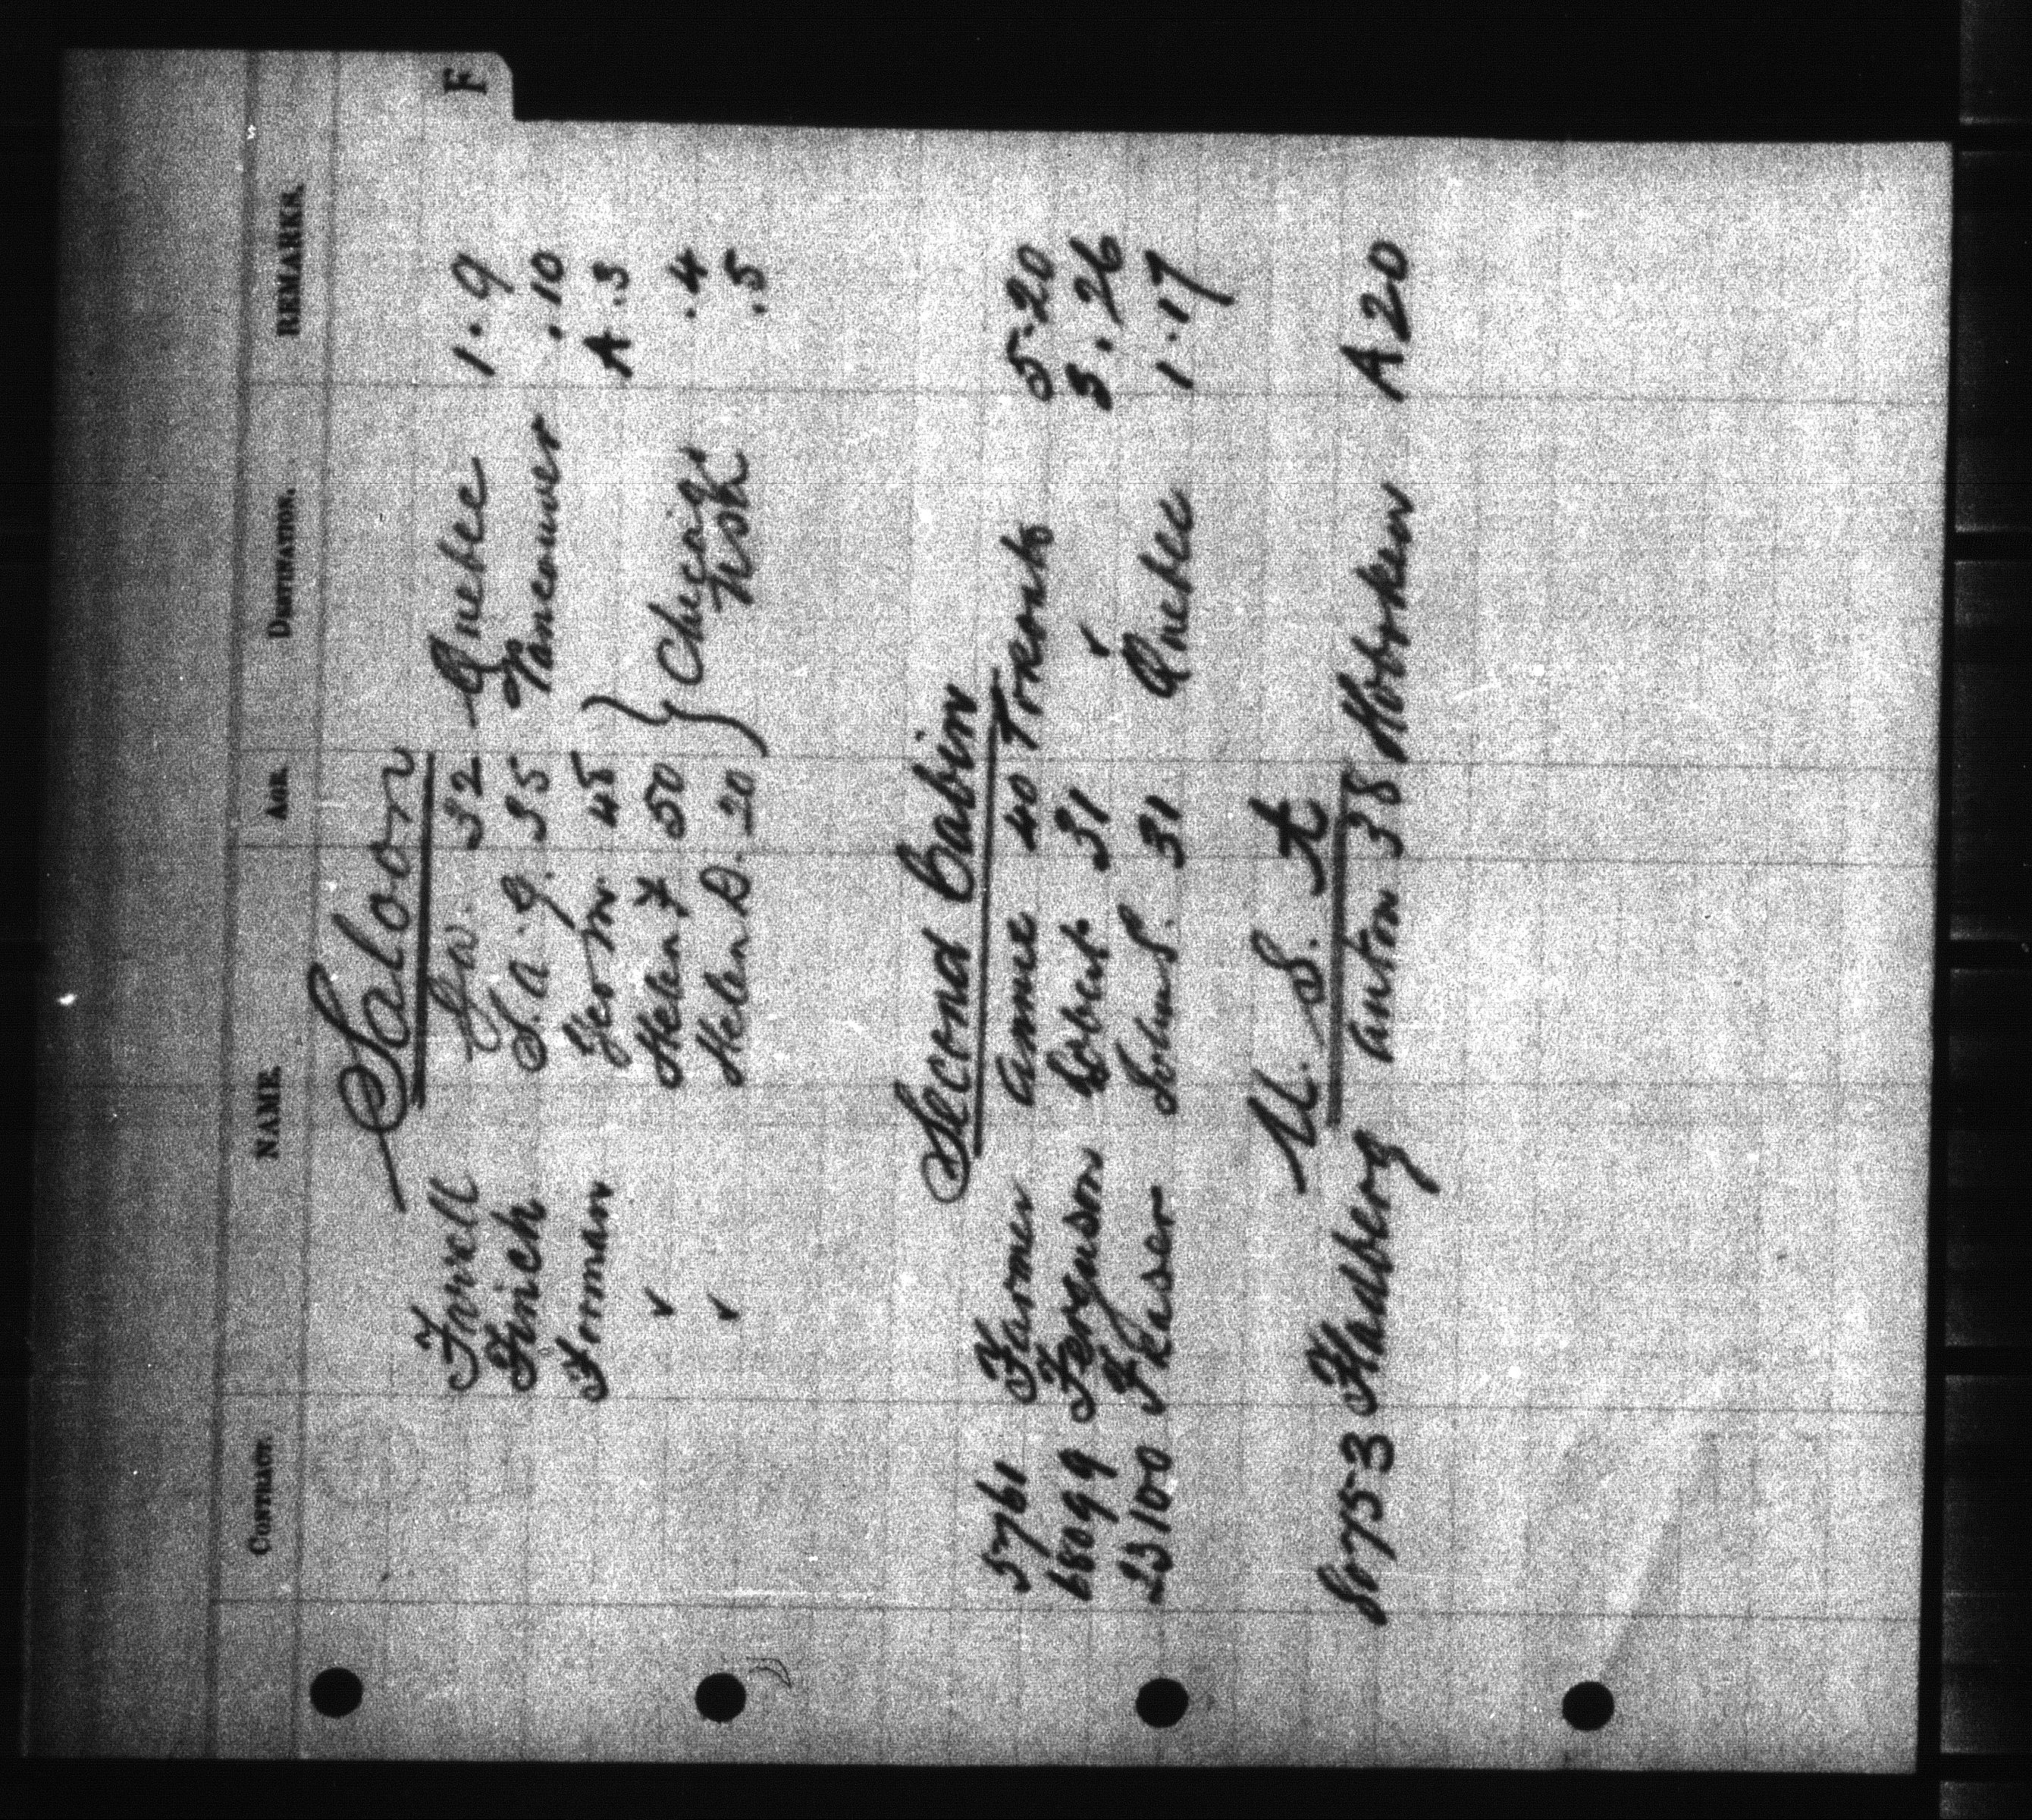 F
CONTRACT. NAME. AGE. DESTINATION. REMARKS.
Saloon
Farrell 32 Quebec 1.9
Finch S. A. G. 35 Vancouver .10
Forman Geo M. 45 A.3
✓ Helen F 50 } Chicago .4
✓ Helen D. 20
.5
Second Cabin
5761 Farmer Annie 40 Toronto 5.20
68099 Ferguson Robert. 31 ✓ 3.26
23100 Fraser John S. 31 Quebec 1.17
U. S. A
80753 Fladberg Anton 38 Hoboken A20